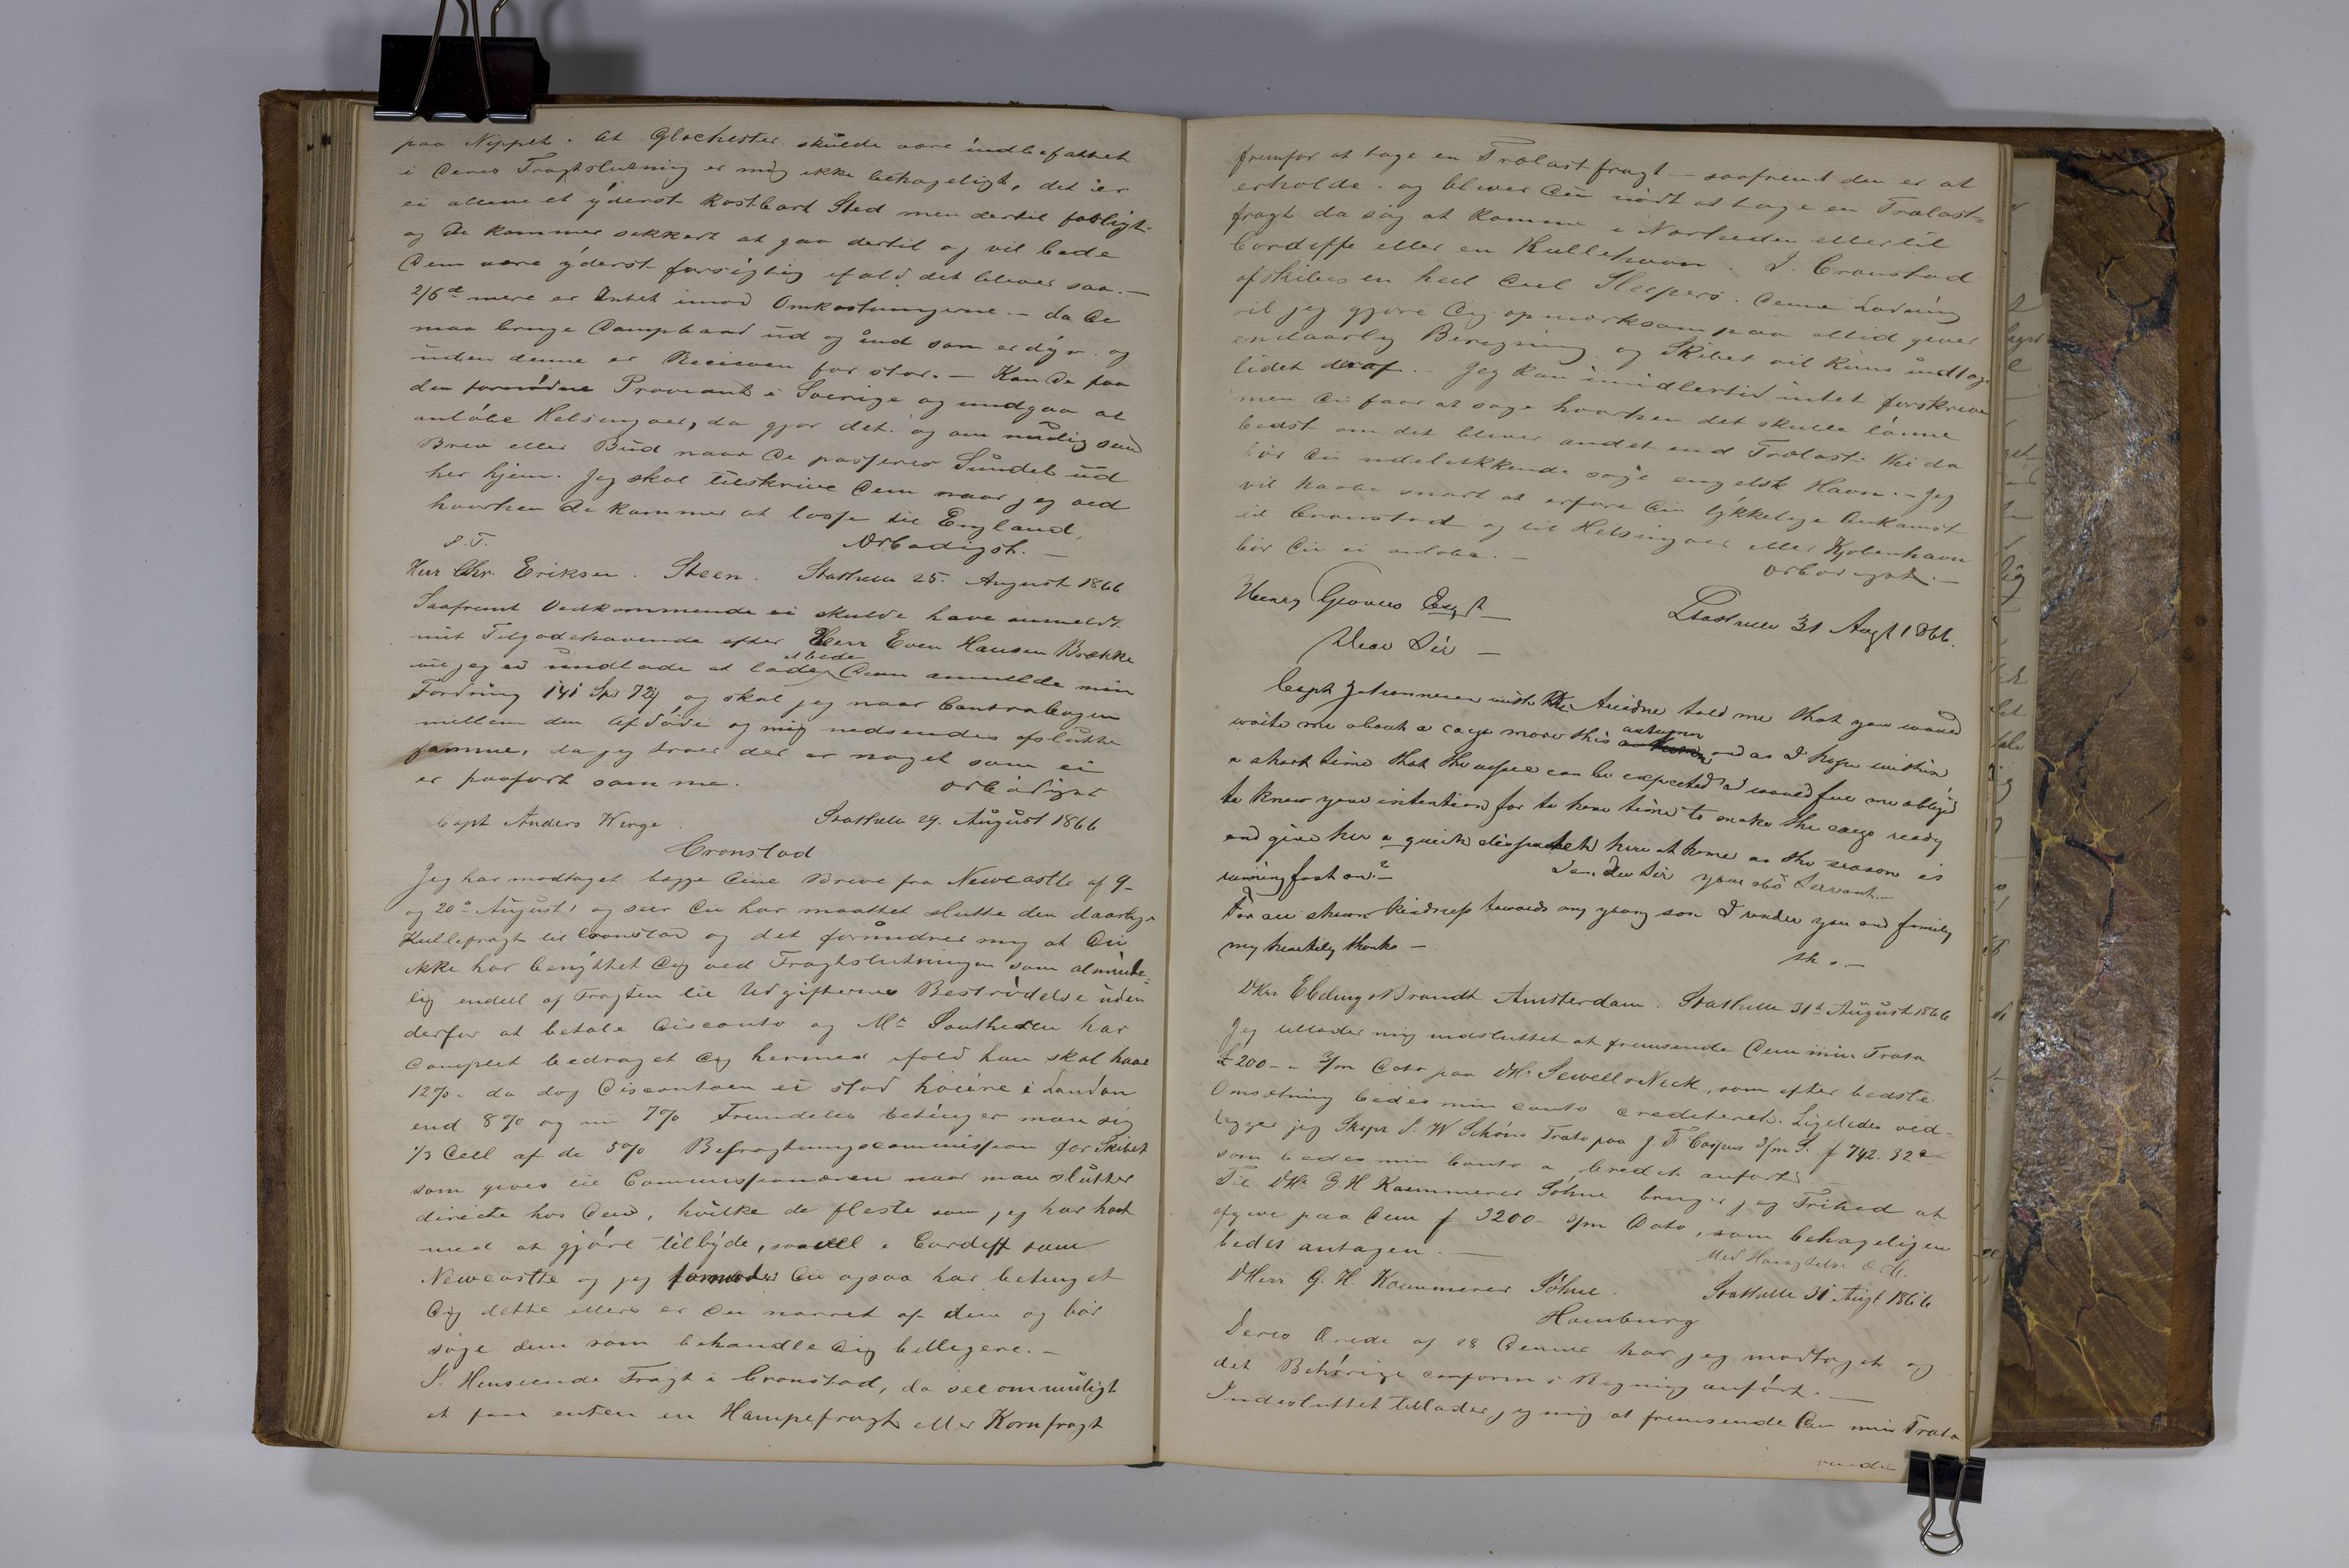 paa Nippet. At Glochester skulde være indbefattet
i Deres Fragtslutning er mig ikke behageligt, det er
ei allene et yderst kostbart Sted men dertil farligt
og De kommer sikkert at gaa dertil og vil bede
Dem være yderst forsigtig ifald det bliver saa. —
2/6d mere er Intet imod Omkostningerne — da De
maa bruge Dampbaad ud og ind som er dyr og
uden denne er Risicoen for stor. — Kan De faa
den fornødne Proviant i Sverige og undgaa at
anløbe Helsingøer, da gjør det. og om mulig send
Brev eller Bud naar De passerer Sundet ud
her hjem. Jeg skal tilskrive Dem naar jeg ved
hvorhen De kommer at losse til England,
S.T. Ærbødigst. —
Herr Chr. Eriksen. Steen. Stathelle 25. August 1866
Saafremt Vedkommende ei skulde have anmeldt
mit Tilgodehavende efter Herr Even Hansen Brække
vil jeg ei undlade at lade Dem anmelde min
Fordring 141 Spd 72 og skal jeg naar Contrabogen
mellem den Afdøde og mig nedsendes afslutte
samme, da jeg troer der er noget som ei
er paaført samme. ærbødigst
Capt Anders Werge. Stathelle 29. August 1866
Cronstad
Jeg har modtaget begge Dine Breve fra Newcastle af 9-
og 20de August og seer Du har maattet slutte den daarlige
Kullefragt til Cronstad og det forundrer mig at Du
ikke har benyttet Dig ved Fragtslutningen som alminde-
lig endeel af Fragten til Udgifternes Bestridelse uden
derfor at betale Disconto og Mr Southeren har
complet bedraget Dig hermed ifald han skal have
12%. da dog Discontoen ei stod høiere i London
end 8% og nu 7% Fremdeles betinger man sig
1/3 Deel af de 5% Befragtningscommission for Skibet
som gives til Commissionæren naar man slutter
directe hos Dem, hvilke de fleste som jeg har havt
med at gjøre tilbyde, saavel i Cardiff som
Newcastle og jeg formoder Du ogsaa har betinget
Dig dette ellers er Du narret af dem og bør
søge dem som behandle Dig billigere. —
I Henseende Fragt i Cronstad, da see om muligt
at faa enten en Hampefragt eller Kornfragt
fremfor at tage en Trælastfragt — saafremt den er at
erholde. og bliver Du nødt at tage en Trælast-
fragt da søg at komme i Nordsøen eller til
Cardiffe eller en Kullehavn. I Cronstad
afskibes en heel Deel Sleepers. Denne Ladning
vil jeg gjøre Dig opmærksom paa altid giver
en daarlig Beregning og Skibet vil kuns indtage
lidet deraf. Jeg kan imidlertid intet forskrive
men Du faar at søge hvorhen det skulle lønne
bedst om det bliver andet end Trælast thi da
bør Du udelukkende søge engelsk Havn. — Jeg
vil haabe snart at erfare Din lykkelige Ankomst
til Cronstad og til Helsingøer eller Kjøbenhavn
bør Du ei anløbe. —
ærbødigst. —
Henry Groves Esqr
Stathelle 31 Augt 1866.
Dear Sir —
Capt Johannesen with the Ariadne told me that you would
write me about a cargo more this autumn and as I hope within
a short time that the vessel can be expected I would feel me obliged
to know your intention for to have time to make the cargo ready
and give her a quick dispatch here at home as the season is
running fast on. —
I am dear Sir your obt Servant —
For all shown kindness towards my young son I render you and family
my heartily thanks —
DHrr Ebeling & Brandt Amsterdam. Stathelle 31te August 1866
Jeg tillader mig indsluttet at fremsende Dem min Trata
£ 200 – 3/m Dato paa DHr Sewell & Neck, som efter bedste
Omsætning bedes min conto crediteret. Ligeledes ved-
legger jeg Skipr S. W Schøns Trata paa J. F. 3/m S. f 742. 32
som bedes min Conto a Credit anført.
Til DHr G. H Kaemmerer Söhne bruger jeg Frihed at
afgive paa Dem f 3200 – 3/m Dato, som behageligen
bedes antagen. —
Med Høiagtelse ærb.
DHerr G. H. Kaemmerer Söhne. Stathelle 31 Augt 1866
Hamburg
Deres ærede af 28 Denne har jeg modtaget og
det Behørige conform i Regning anført. —
Indesluttet tillader jeg mig at fremsende Dem min Trata